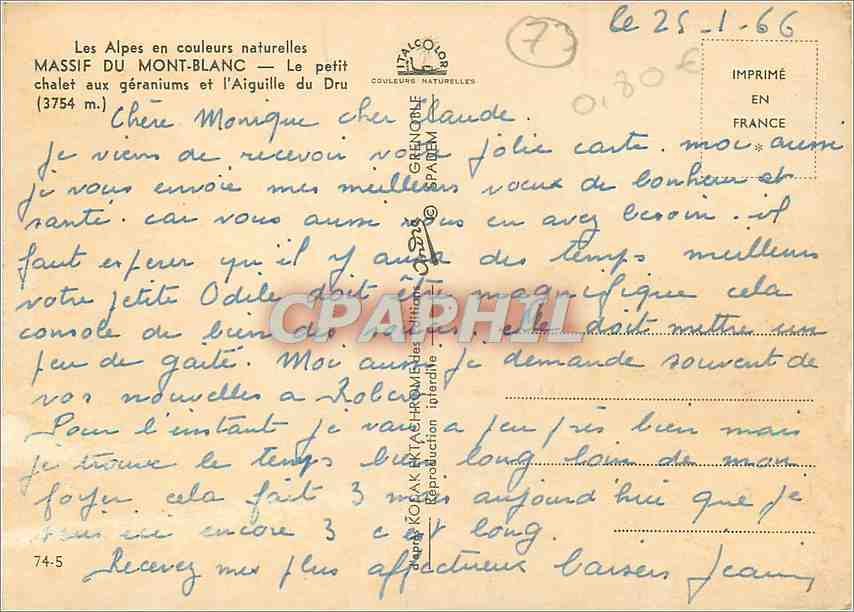 le 25-1-66
73
0,80€
Les Alpes en couleurs naturelles
MASSIF DU MONT-BLANC — Le petit
chalet aux géraniums et l'Aiguille du Dru
(3754 m.)
ITALCOLOR
COULEURS NATURELLES
IMPRIMÉ
EN
FRANCE
*
Chère Monique cher Claude.
Je viens de recevoir votre jolie carte. moi aussi
je vous envoie mes meilleurs vœux de bonheur et
santé. car vous aussi vous en avez besoin. il
faut esperer qu'il y aura des temps meilleurs
votre petite Odile doit être magnifique cela
console de bien des soucis, elle doit mettre un
peu de gaité. Moi aussi je demande souvent de
vos nouvelles a Robert.
Pour l'instant je vais a peu près bien mais
je trouve le temps bien long loin de mon
foyer cela fait 3 mois aujourd'hui que je
suis ici encore 3 c'est long.
Recevez mes plus affectueux baisers
74-5
d'après KODAK EKTACHROME des Éditions André GRENOBLE
Reproduction interdite. © SPADEM
CPAPHIL